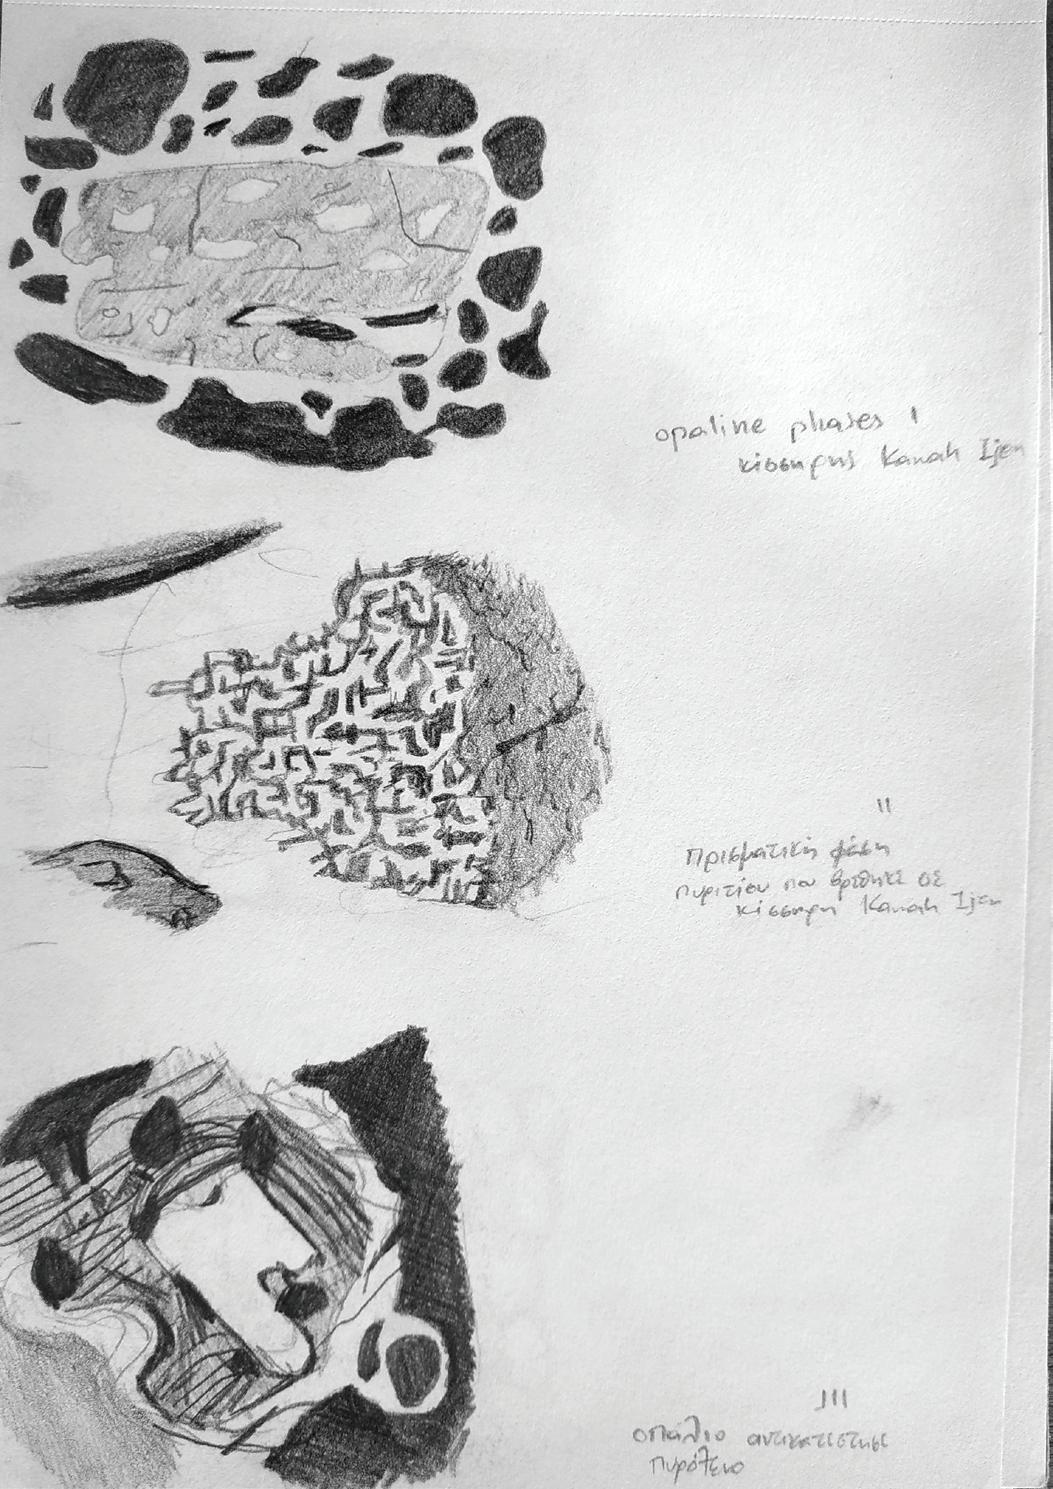 opaline phases I
κίσσηρης Kawah Ijen
II
Πρισματική φάση
πυριτίου που βρέθηκε σε
κίσσηρη Kawah Ijen
III
οπάλιο αντικατέστησε
πυρόξενο